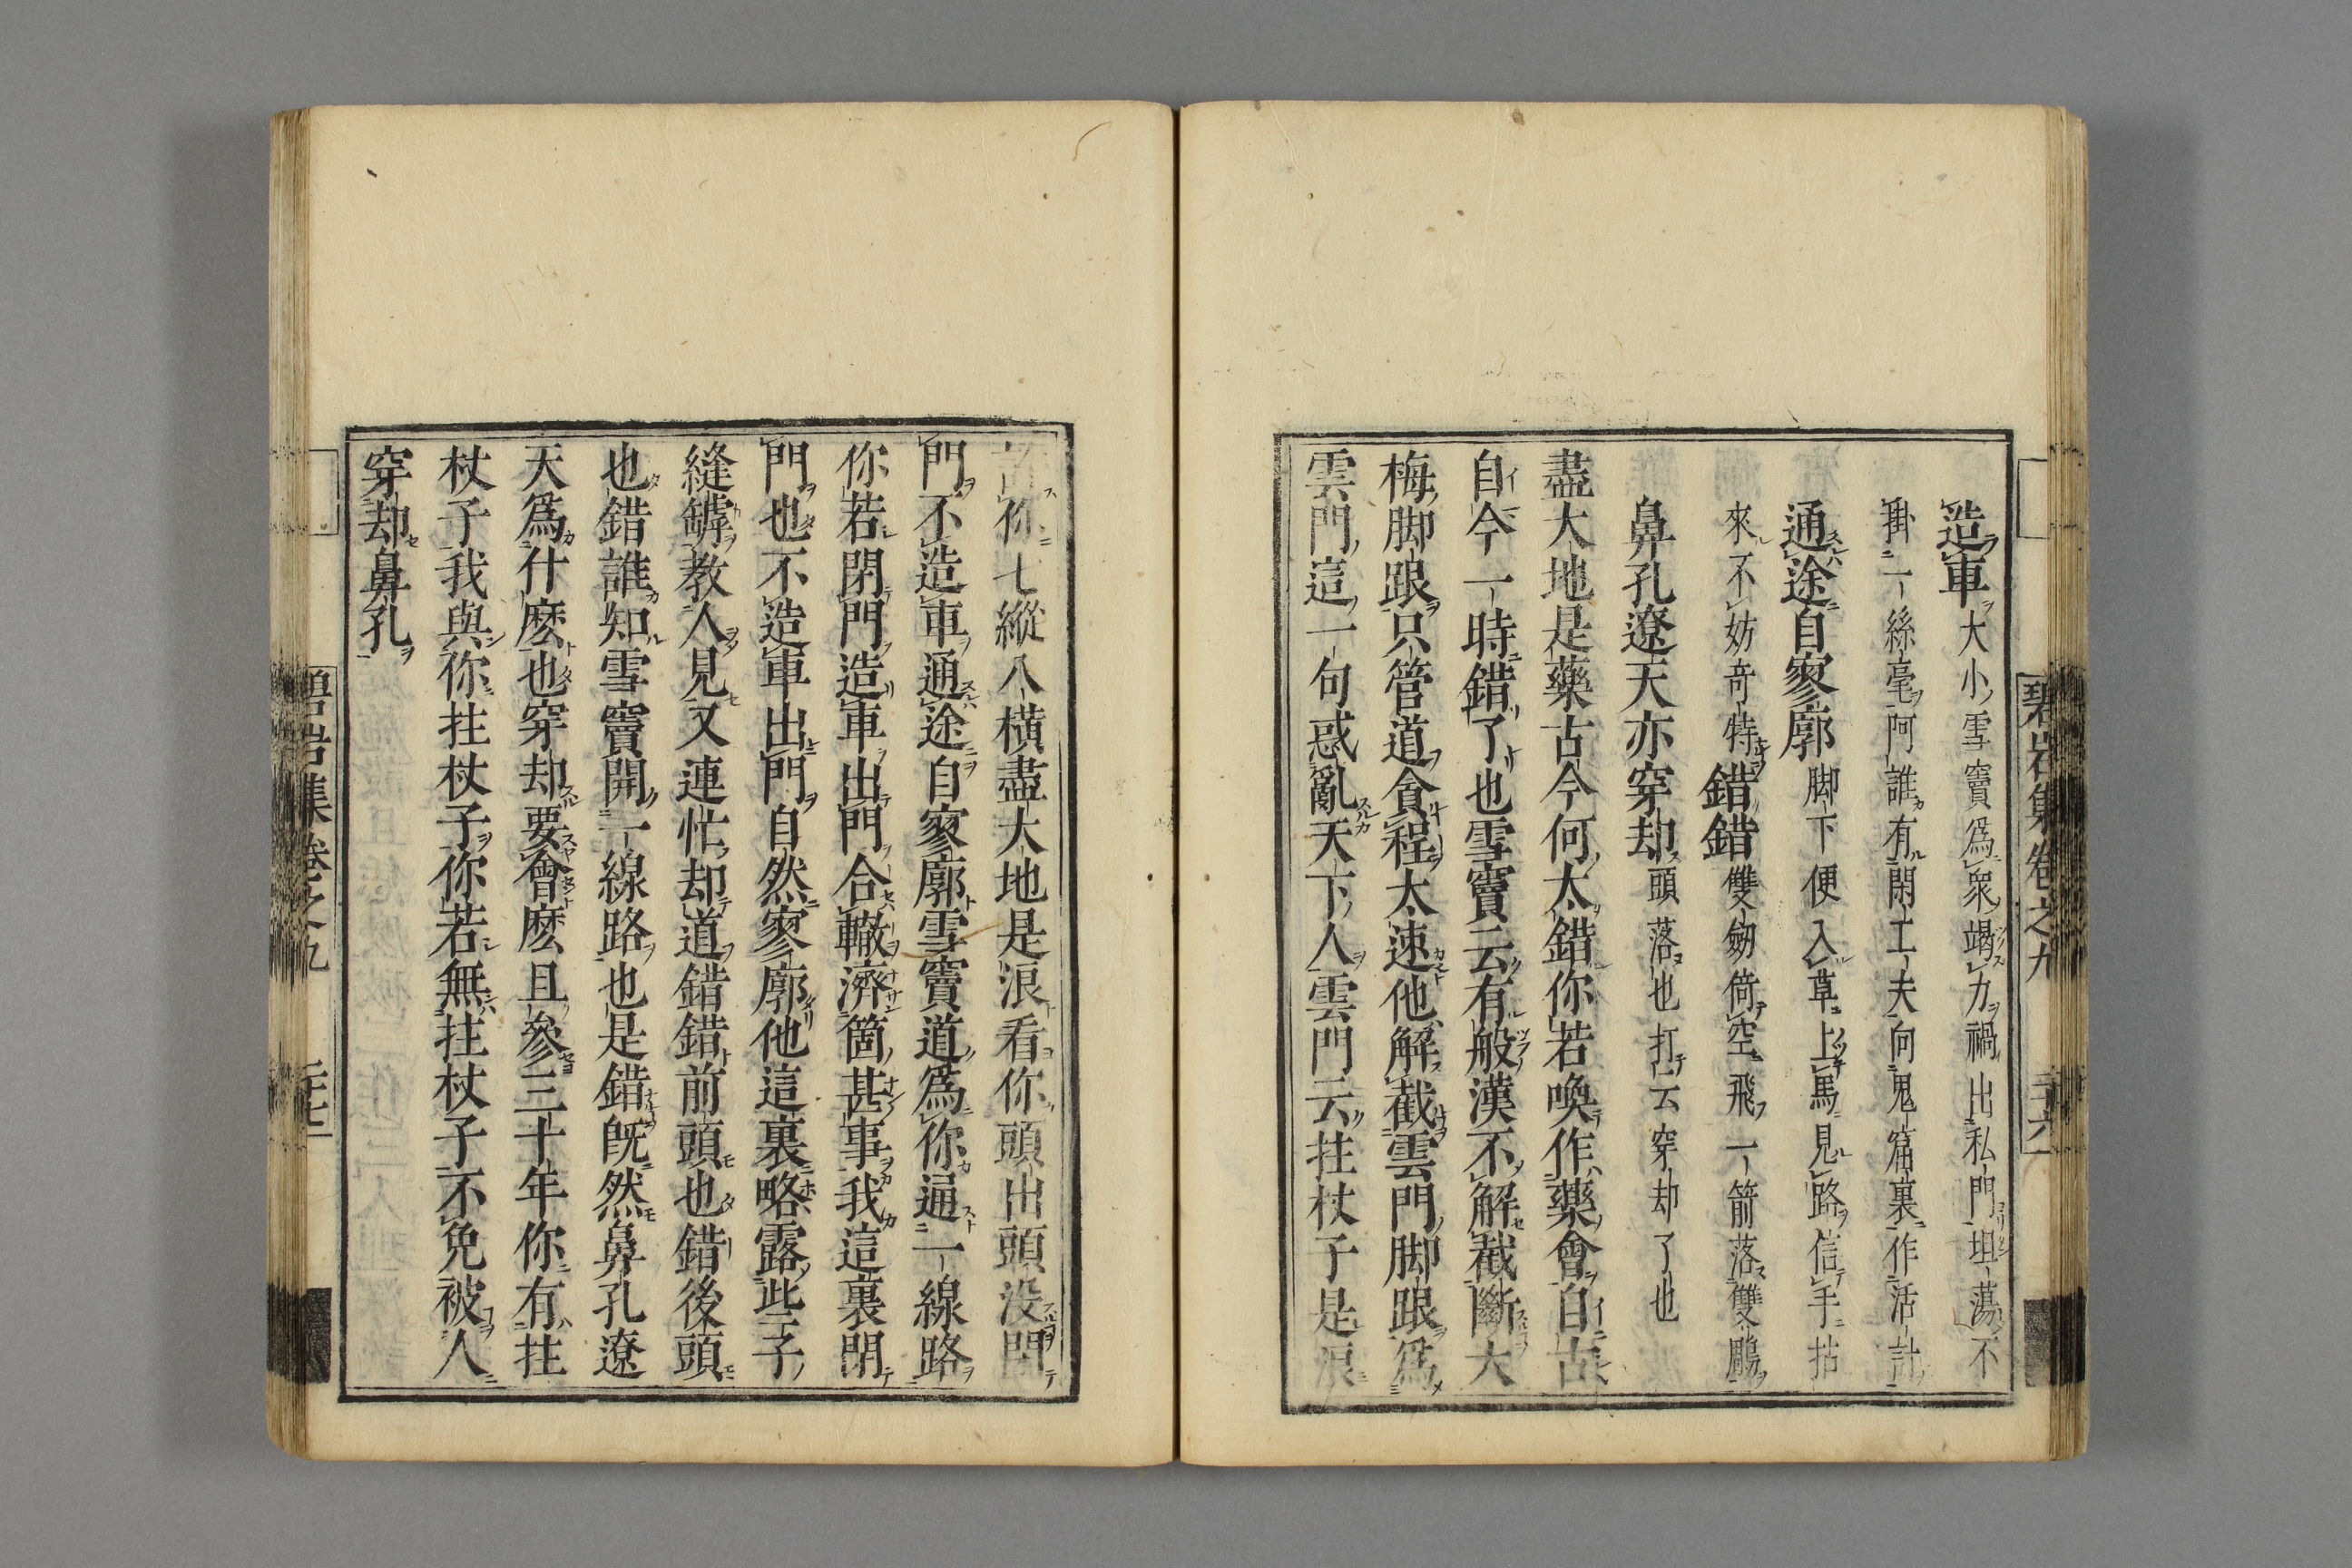 造車大小雪竇爲衆竭力禍出私門坦蕩不
掛一絲毫阿誰有閑工夫向鬼窟裏作活計
通途自寥廓脚下便入草上馬見路信手拈
來不妨奇特錯錯雙劒倚空飛一箭落雙鵰
鼻孔遼天亦穿却頭落也打云穿却了也
盡大地是藥古今何太錯你若喚作藥會自古
自今一時錯了也雪竇云有般漢不解截斷大
梅脚跟只管道貪程太速他解截雲門脚跟爲
雲門這一句惑亂天下人雲門云拄杖子是浪
許你七縱八横盡大地是浪看你頭出頭没閉
門不造車通途自寥廓雪竇道爲你通一線路
你若閉門造車出門合轍濟箇甚事我這裏閉
門也不造車出門自然寥廓他這裏略露些子
縫罅教人見又連忙却道錯錯前頭也錯後頭
也錯誰知雪竇開一線路也是錯既然鼻孔遼
天爲什麽也穿却要會麽且參三十年你有拄
杖子我與你拄杖子你若無拄杖子不免被人
穿却鼻孔
碧岩集卷之九 二十六
碧岩集卷之九 二十七